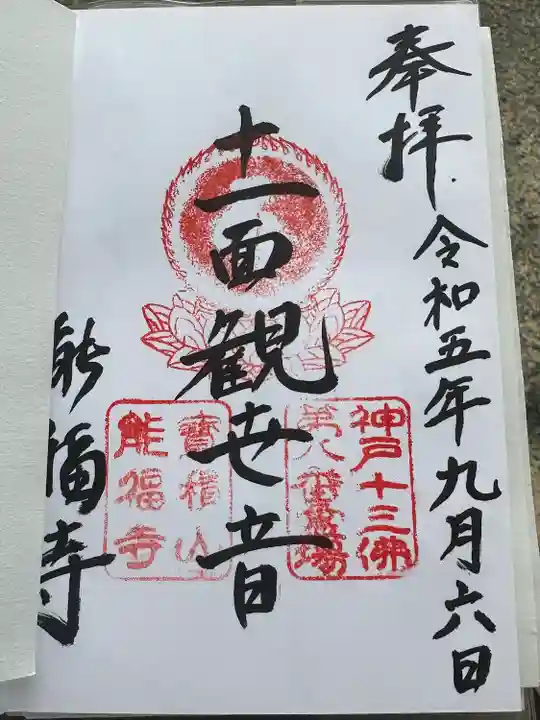 奉拝 令和五年九月六日
十一面観世音
能福寺
神戸十三佛
第八番霊場
寶積山
能福寺